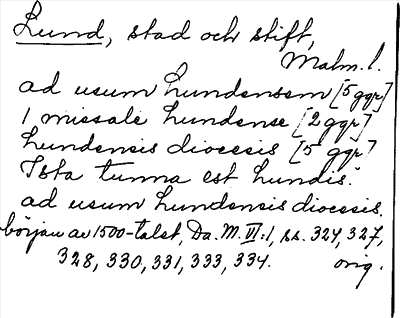 Lund, stad och stift,
Malm. l.
ad usum lundensem [5 ggr]
1 missale lundense [2 ggr]
lundensis diocesis [5 ggr]
Ista tunna est lundis.
ad usum lundensis diocesis.
början av 1500-talet, Da. M. VI:1, ss. 324, 327,
328, 330, 331, 333, 334. orig.